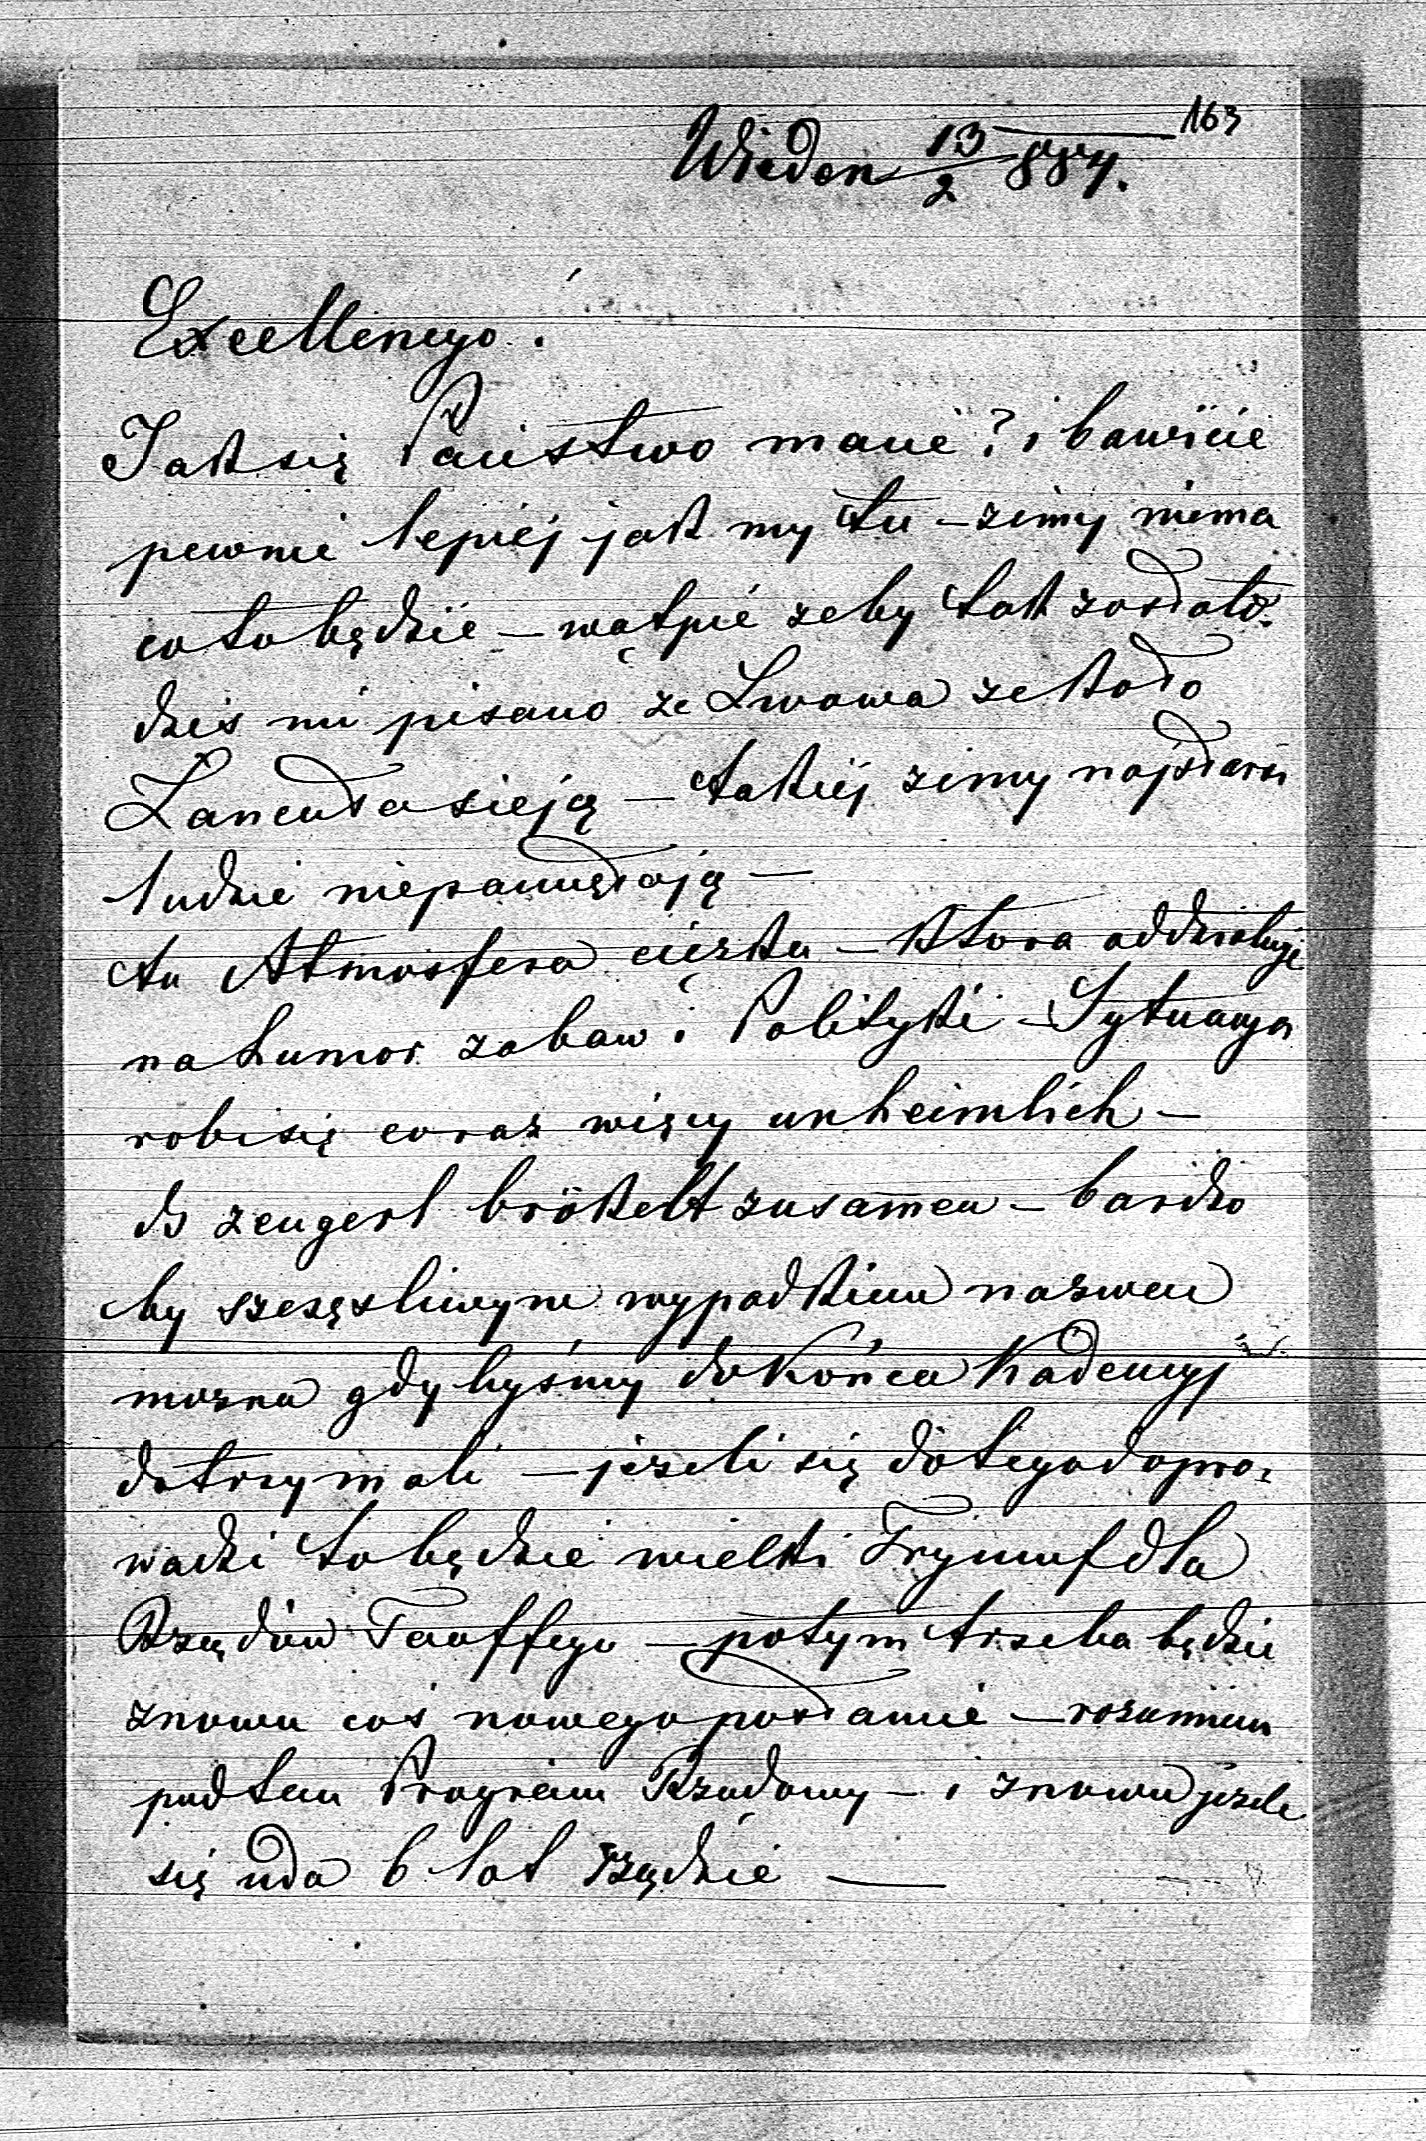 163
Wiedeń 13/2 884.
Excellencyo!
Jak się Państwo macie? i bawicie
pewnie lepiej jak my tu – zimy niema
co to będzie – wątpię zeby tak zostało.
dziś mi pisano ze Lwowa ze koło
Łancuta sieją – takiej zimy najstarsi
ludzie niepamiętają –
tu Atmosfera cięzka – ktora oddziałuje
na humor zabaw i Polityki – Sytuacya
robi się coraz więcy unheimlich –
ds zeugerl brökelt zusamen – bardzo
by szczęsliwym wypadkiem nazwać
mozna gdybyśmy do końca Kadencyj
dotrzymali – jezeli się do tego dopro-
wadzi to będzie wielki Tryumf dla
Rządów Taaffego – potym trzeba będzie
znowu coś nowego postawić – rozumiem
pod tem Program Rządowy – i znowu jezeli
się uda 6 lat rządzić –